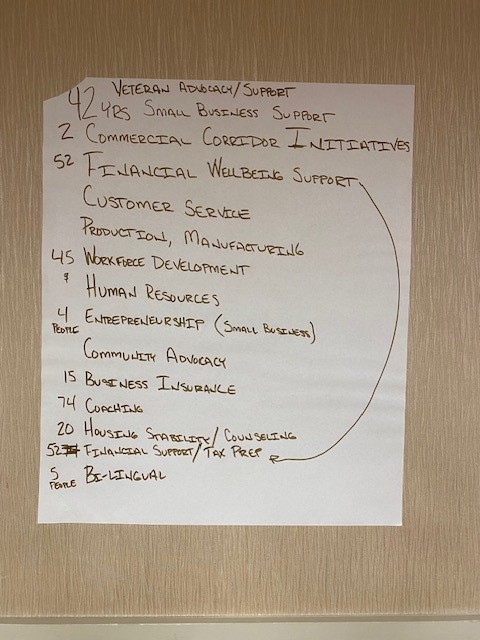 Veteran Advocacy/Support
42 yrs Small Business Support
2 Commercial Corridor Initiatives
52 Financial Wellbeing Support
Customer Service
Production, Manufacturing
45 Workforce Development
& Human Resources
4 people Entrepreneurship (Small Business)
Community Advocacy
15 Business Insurance
74 Coaching
20 Housing Stability/Counseling
52 Financial Support/Tax Prep
5 people Bi-Lingual